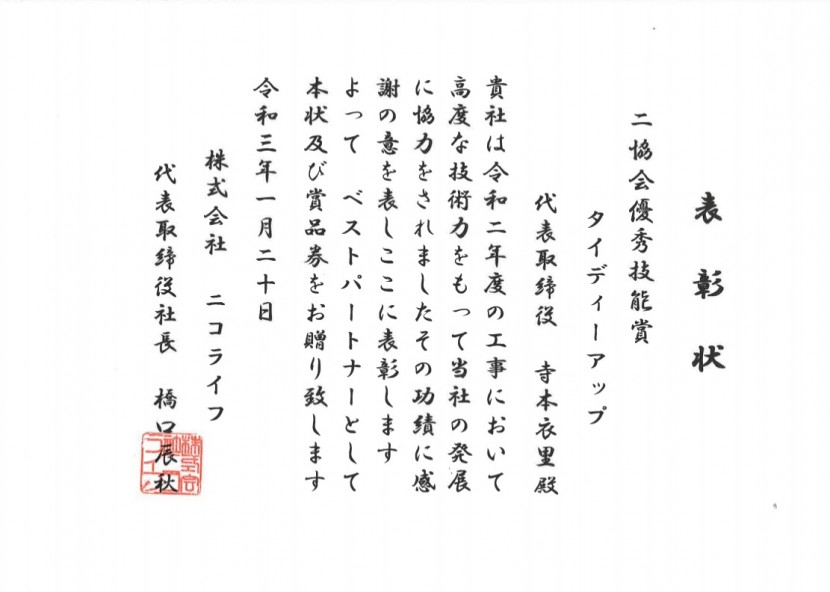 表彰状
二協会優秀技能賞
タイディーアップ
代表取締役 寺本衣里殿
貴社は令和二年度の工事において
高度な技術力をもって当社の発展
に協力をされましたその功績に感
謝の意を表しここに表彰します
よって ベストパートナーとして
本状及び賞品券をお贈り致します
令和三年一月二十日
株式会社 ニコライフ
代表取締役社長 橋口辰秋